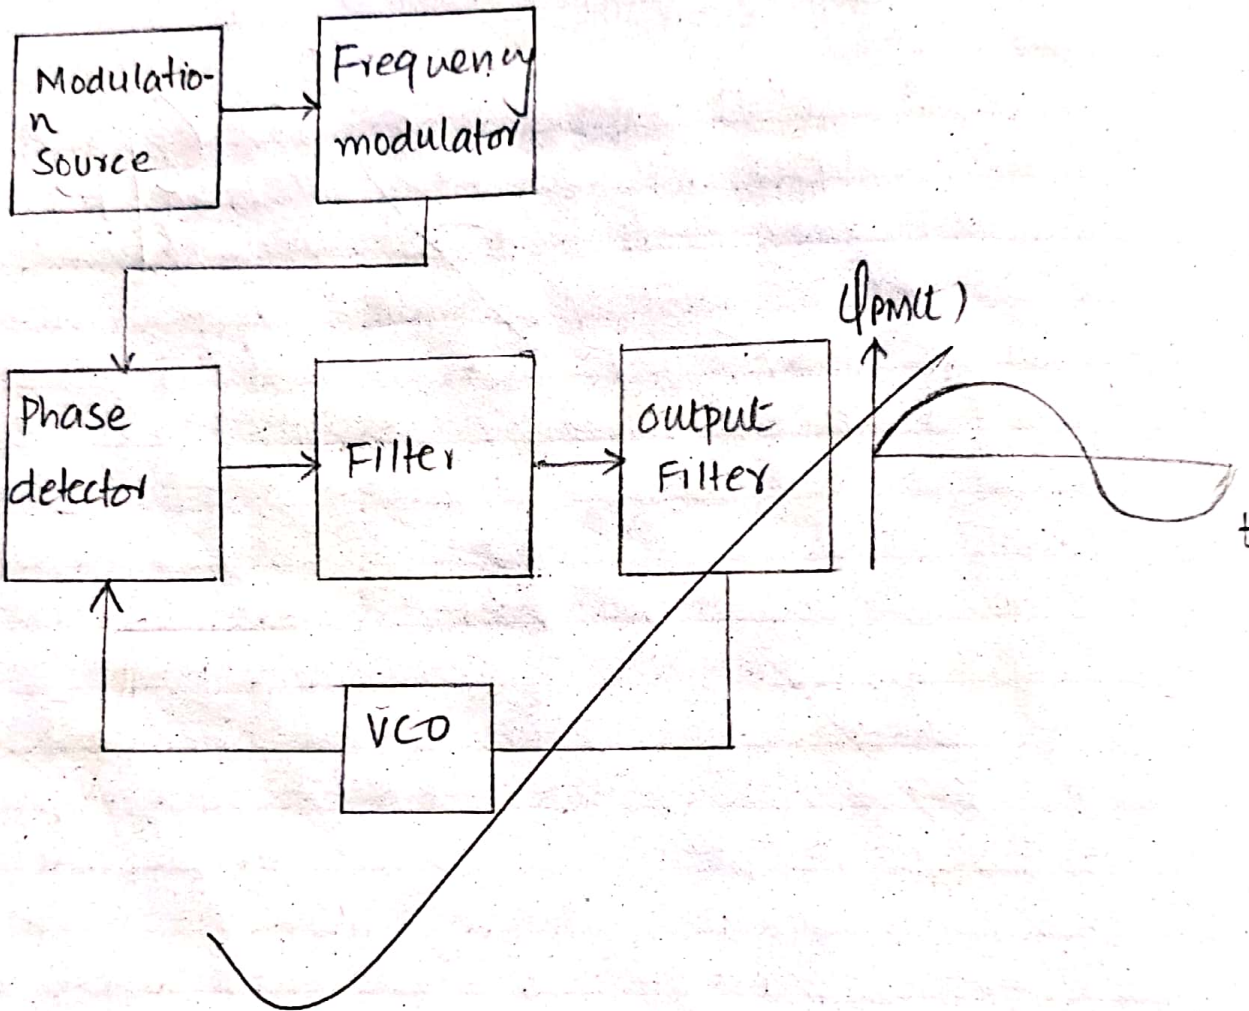 Modulatio-
n
Source
Frequency
modulator
φPM(t)
Phase
detector
Filter
output
Filter
t
VCO